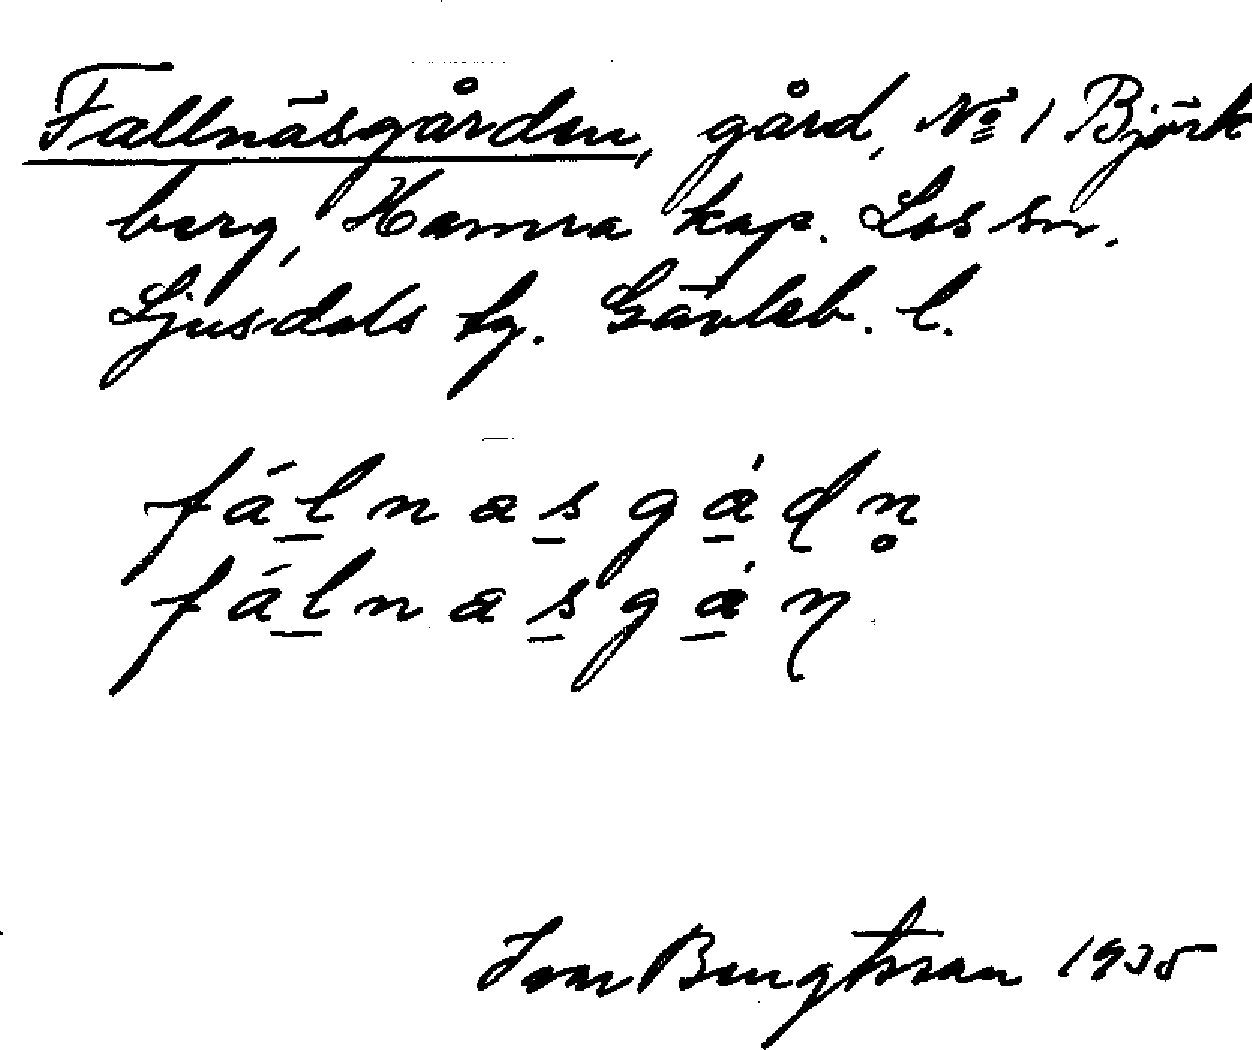 Fallnäsgården, gård, No 1 Björk
berg, Hamra kap. Los sn.
Ljusdals tg. Gävleb. l.
fálnasgádn̥
fálnasgáɳ
Ivar Bengtsson 1935